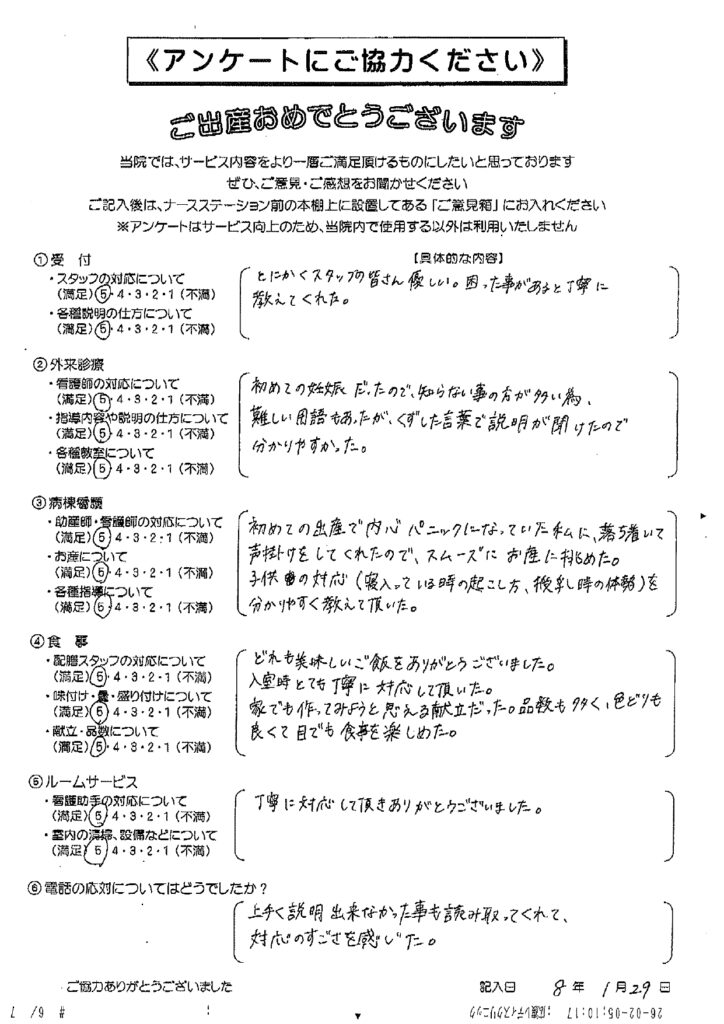 《アンケートにご協力ください》
ご出産おめでとうございます
当院では、サービス内容をより一層ご満足頂けるものにしたいと思っております
ぜひ、ご意見・ご感想をお聞かせください
ご記入後は、ナースステーション前の本棚上に設置してある「ご意見箱」にお入れください
※アンケートはサービス向上のため、当院内で使用する以外は利用いたしません
①受 付
【具体的な内容】
・スタッフの対応について
(満足) 5・4・3・2・1 (不満)
・各種説明の仕方について
(満足) 5・4・3・2・1 (不満)
とにかくスタッフの皆さん優しい。困った事があると丁寧に
教えてくれた。
②外来診療
・看護師の対応について
(満足) 5・4・3・2・1 (不満)
・指導内容や説明の仕方について
(満足) 5・4・3・2・1 (不満)
・各種教室について
(満足) 5・4・3・2・1 (不満)
初めての妊娠だったので、知らない事の方が多い為、
難しい用語もあったが、くずした言葉で説明が聞けたので
分かりやすかった。
③病棟看護
・助産師・看護師の対応について
(満足) 5・4・3・2・1 (不満)
・お産について
(満足) 5・4・3・2・1 (不満)
・各種指導について
(満足) 5・4・3・2・1 (不満)
初めての出産で内心パニックになっていた私に、落ち着いて
声掛けをしてくれたので、スムーズにお産に挑めた。
子供の対応(寝入っている時の起こし方、授乳し時の体勢)を
分かりやすく教えて頂いた。
④食 事
・配膳スタッフの対応について
(満足) 5・4・3・2・1 (不満)
・味付け・量・盛り付けについて
(満足) 5・4・3・2・1 (不満)
・献立・品数について
(満足) 5・4・3・2・1 (不満)
どれも美味しいご飯をありがとうございました。
入室時とても丁寧に対応して頂いた。
家でも作ってみようと思える献立だった。品数も多く、色どりも
良くて目でも食事を楽しめた。
⑤ルームサービス
・看護助手の対応について
(満足) 5・4・3・2・1 (不満)
・室内の清掃、設備などについて
(満足) 5・4・3・2・1 (不満)
丁寧に対応して頂きありがとうございました。
⑥電話の応対についてはどうでしたか?
上手く説明出来なかった事も読み取ってくれて、
対応のすごさを感じた。
ご協力ありがとうございました
記入日 8年 1月29日
26-02-05;10:17
# 6/ 7